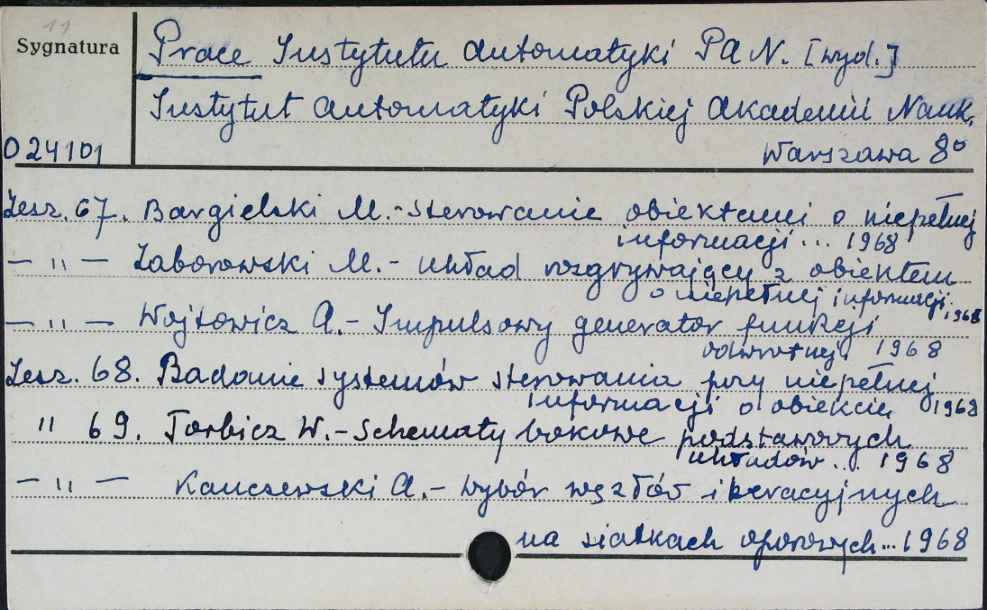 11
Sygnatura
Prace Instytutu Automatyki PAN. [wyd.]
Instytut Automatyki Polskiej Akademii Nauk.
024101
Warszawa 8°
Zesz. 67. Bargielski M.-Sterowanie obiektami o niepełnej
informacji... 1968
— " — Zaborowski M.- układ rozgrywający z obiektem
o niepełnej informacji. 1968
— " — Wojtowicz A.- Impulsowy generator funkcji
odwrotnej. 1968
Zesz. 68. Badanie systemów sterowania przy niepełnej
informacji o obiekcie 1968
" 69. Torbicz W.-Schematy bokowe podstawowych
układów... 1968
— " — Kauczewski A.- wybór węzłów iteracyjnych
na siatkach oporowych...1968